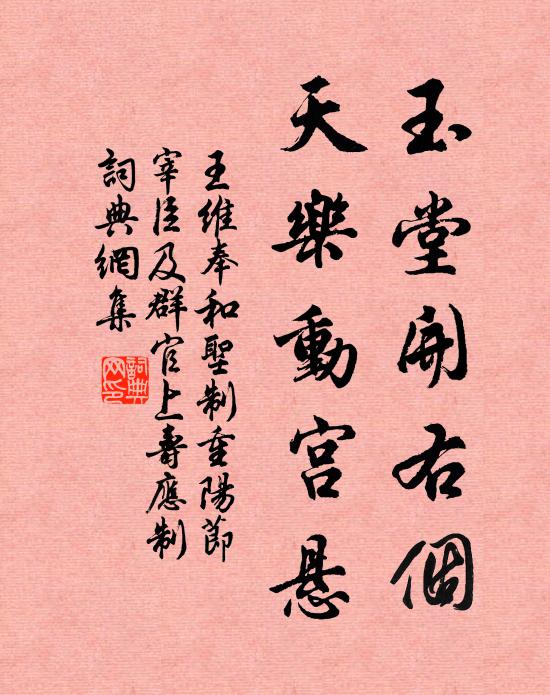 玉堂開右個
天樂動宫悬
王維奉和聖制重陽節
宰臣及群官上壽應制
詞典網集
詞典
网印